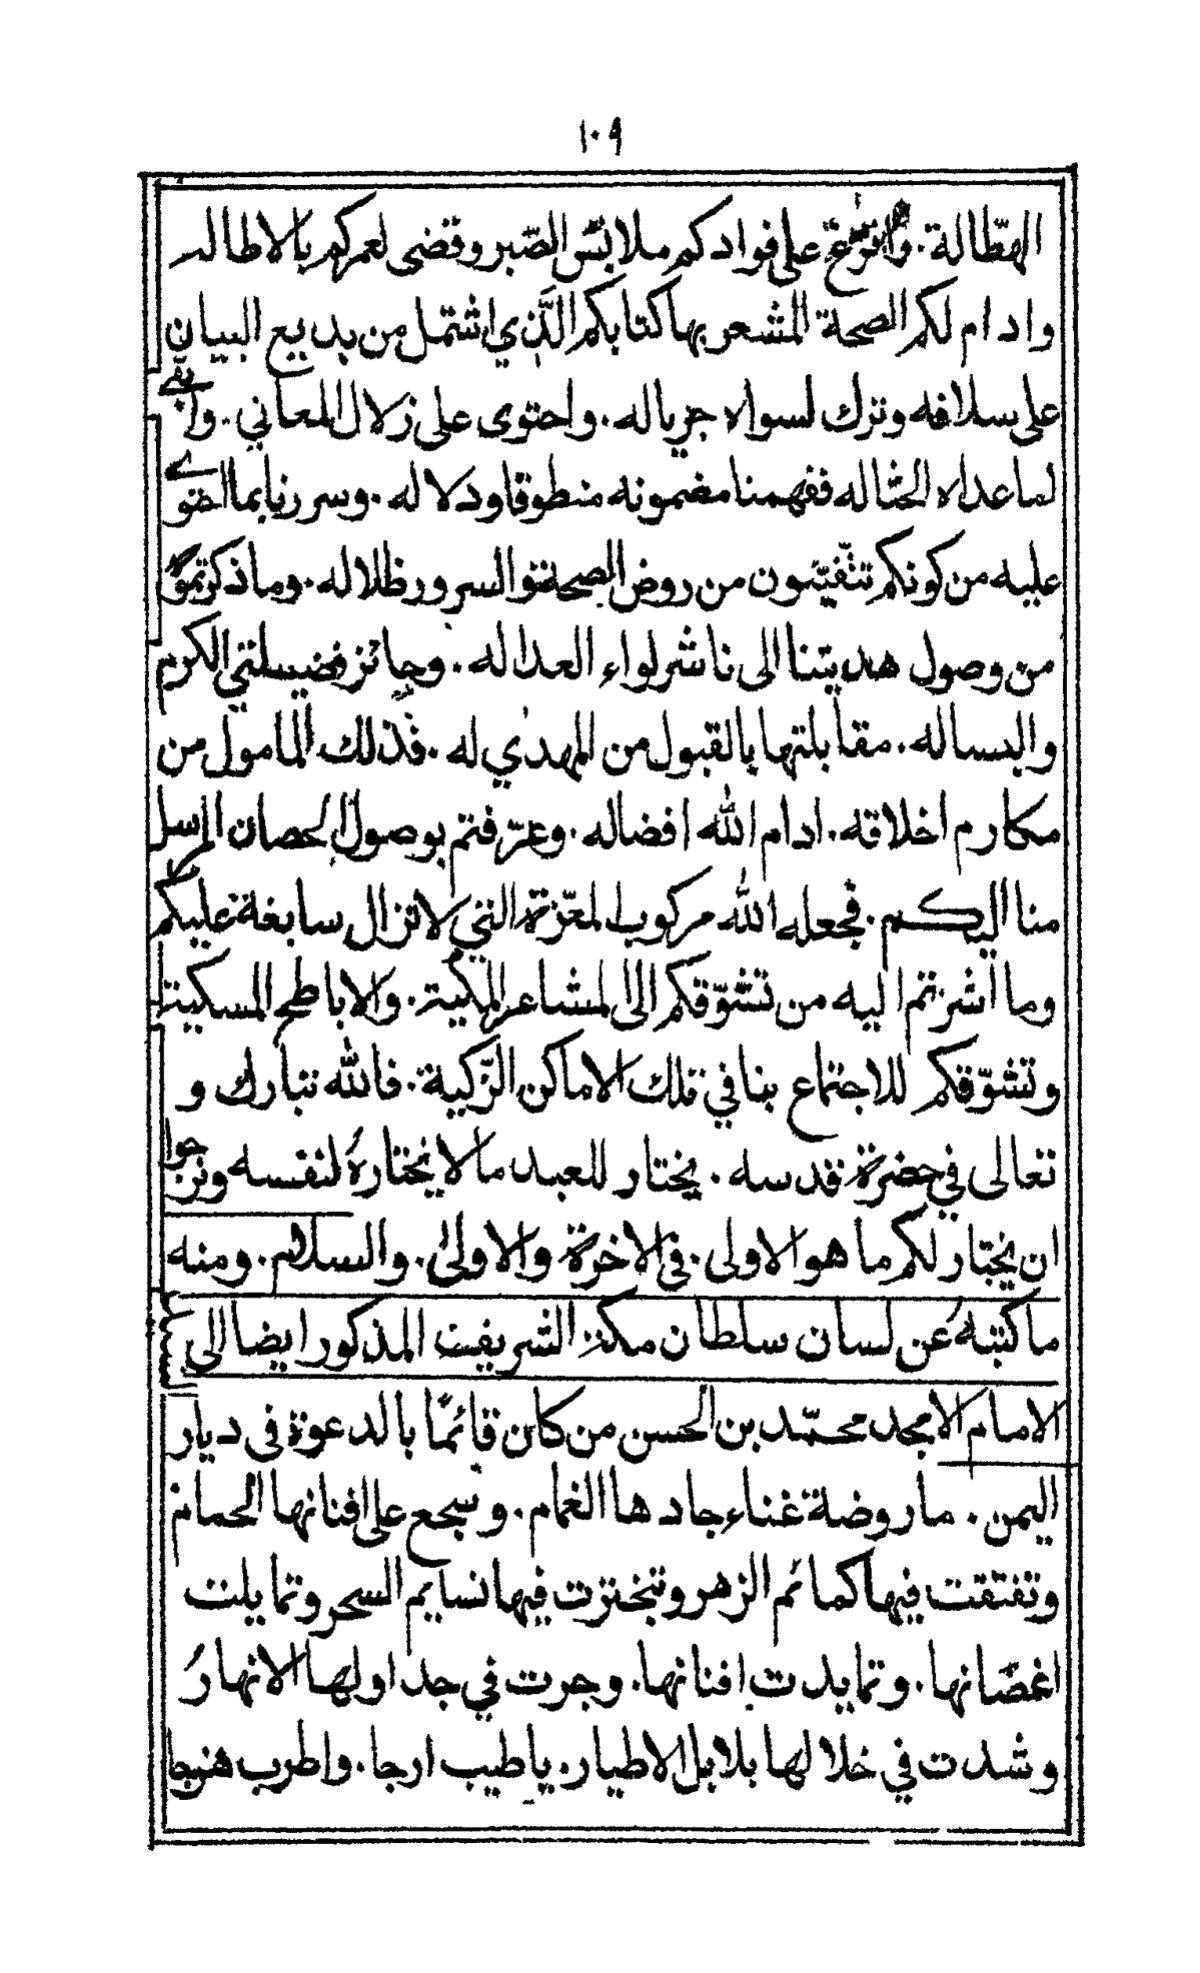 ١٠٩
الهطّالة. وافرغ على فوادكم ملابس الصّبر وقضى لعمركم بالاطاله
وادام لكم الصحة المشعر بها كتابكم الّذي اشتمل من بديع البيان
على سلافه وترك لسواه جرياله. واحتوى على زلال المعاني. وابقى
لما عداه الحثاله ففهمنا مضمونه منطوقا ودلاله. وسررنا بما احتوى
عليه من كونكم تتفيّئون من روض الصحة والسرور ظلاله. وما ذكرتموه
من وصول هديتنا الى ناشر لواء العداله. وحائز فضيلتي الكرم
والبساله. مقابلتها بالقبول من المهدي له. فذلك المامول من
مكارم اخلاقه. ادام الله افضاله. وعرّفتم بوصول الحصان المرسل
منا اليكم. فجعله الله مركوب المعزّة التي لا تزال سابغة عليكم
وما اشرتم اليه من تشوّقكم الى المشاعر المكية. والاباطح المسكية
وتشوّقكم للاجتماع بنا في تلك الاماكن الزّكية. فالله تبارك و
تعالى في حضرة قدسه. يختار للعبد ما لا يختاره لنفسه ونرجوا
ان يختار لكم ما هو الاولى. في الاخرة والاولى. والسلام. ومنه
ما كتبته عن لسان سلطان مكة الشريفة المذكور ايضا الى
الامام الامجد محمّد بن الحسن من كان قائمًا بالدعوة في ديار
اليمن. ما روضة غناء جادها الغمام. وسجع على افنانها الحمام
وتفتقت فيها كمائم الزهر وتبخترت فيها نسايم السحر وتمايلت
اغصانها. وتمايدت افنانها. وجرت في جداولها الانهارُ
وشدت في خلالها بلابل الاطيار. باطيب ارجا. واطرب هزجا